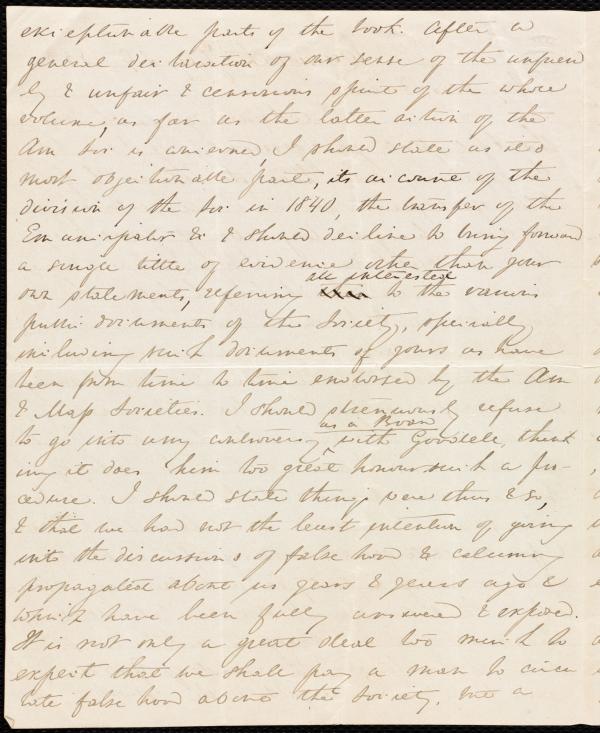 exceptionable parts of the book. After a
general declaration of our sense of the unfriend
ly & unfair & censorious spirit of the whole
volume, as far as the latter action of the
Am Soc is concerned, I should state as its
most objectionable part, its account of the
division of the Soc in 1840, the transfer of the
Emancipator &c & should decline to bring forward
a single tittle of evidence other than your
own statements, referring all interested to the various
public documents of the Society, specially
including such documents of yours as have
been from time to time endorsed by the Am
& Mass Societies. I should strenuously refuse
to go into any controversy as a Board with Goodell, think
ing it does him too great honour such a pro-
cedure. I should state things were thus & so,
& that we had not the least intention of going
into the discussions of falsehood & calumny
propagated about us years & years ago &
which have been fully answered & exposed.
It is not only a great deal too much to
expect that we shall pay a man to circu
late falsehood about the Society, but a